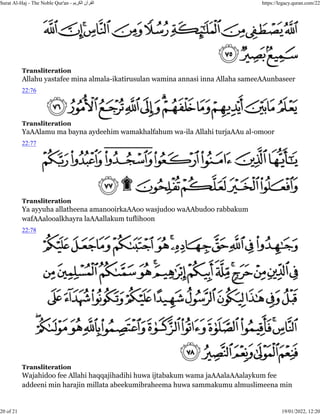 Surat Al-Haj - The Noble Qur'an - القرآن الكريم
https://legacy.quran.com/22
ٱللَّهُ يَصْطَفِى مِنَ ٱلْمَلَـٰٓئِكَةِ رُسُلًا وَمِنَ ٱلنَّاسِ ۚ إِنَّ ٱللَّهَ
سَمِيعٌۢ بَصِيرٌ ٧٥
Transliteration
Allahu yastafee mina almala-ikatirusulan wamina annasi inna Allaha sameeAAunbaseer
22:76
يَعْلَمُ مَا بَيْنَ أَيْدِيهِمْ وَمَا خَلْفَهُمْ ۗ وَإِلَى ٱللَّهِ تُرْجَعُ ٱلْأُمُورُ ٧٦
Transliteration
YaAAlamu ma bayna aydeehim wamakhalfahum wa-ila Allahi turjaAAu al-omoor
22:77
يَـٰٓأَيُّهَا ٱلَّذِينَ ءَامَنُوا۟ ٱرْكَعُوا۟ وَٱسْجُدُوا۟ وَٱعْبُدُوا۟ رَبَّكُمْ
وَٱفْعَلُوا۟ ٱلْخَيْرَ لَعَلَّكُمْ تُفْلِحُونَ ۩ ٧٧
Transliteration
Ya ayyuha allatheena amanoorkaAAoo wasjudoo waAAbudoo rabbakum
wafAAalooalkhayra laAAallakum tuflihoon
22:78
وَجَـٰهِدُوا۟ فِى ٱللَّهِ حَقَّ جِهَادِهِۦ ۚ هُوَ ٱجْتَبَىٰكُمْ وَمَا جَعَلَ عَلَيْكُمْ
فِى ٱلدِّينِ مِنْ حَرَجٍ ۚ مِّلَّةَ أَبِيكُمْ إِبْرَٰهِيمَ ۚ هُوَ سَمَّىٰكُمُ ٱلْمُسْلِمِينَ مِن
قَبْلُ وَفِى هَـٰذَا لِيَكُونَ ٱلرَّسُولُ شَهِيدًا عَلَيْكُمْ وَتَكُونُوا۟ شُهَدَآءَ عَلَى
ٱلنَّاسِ ۚ فَأَقِيمُوا۟ ٱلصَّلَوٰةَ وَءَاتُوا۟ ٱلزَّكَوٰةَ وَٱعْتَصِمُوا۟ بِٱللَّهِ هُوَ مَوْلَىٰكُمْ ۖ
فَنِعْمَ ٱلْمَوْلَىٰ وَنِعْمَ ٱلنَّصِيرُ ٧٨
Transliteration
Wajahidoo fee Allahi haqqajihadihi huwa ijtabakum wama jaAAalaAAalaykum fee
addeeni min harajin millata abeekumibraheema huwa sammakumu almuslimeena min
20 of 21
19/01/2022, 12:20